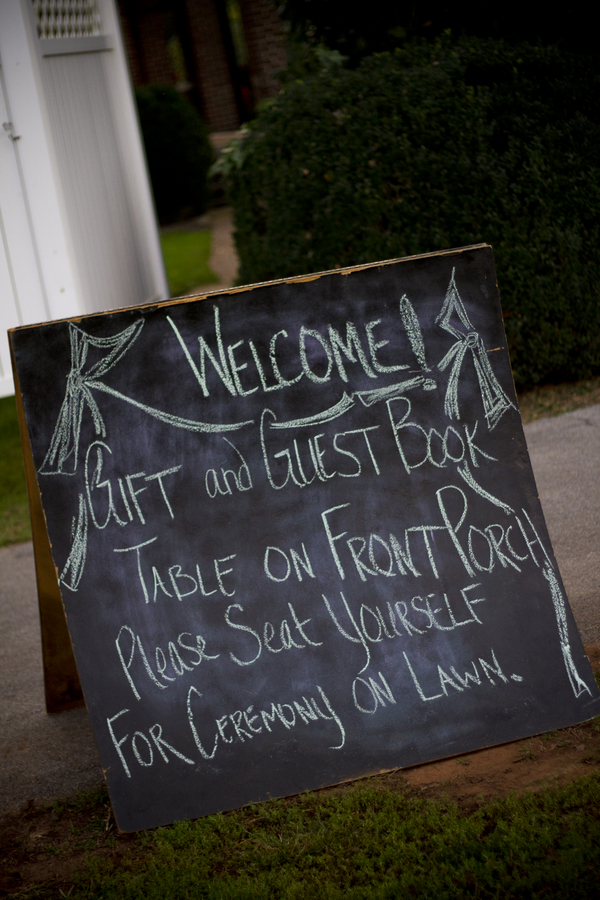 WELCOME!
GIFT and GUEST BOOK
TABLE ON FRONT PORCH
Please Seat YOURSELF
FOR CEREMONY ON LAWN.